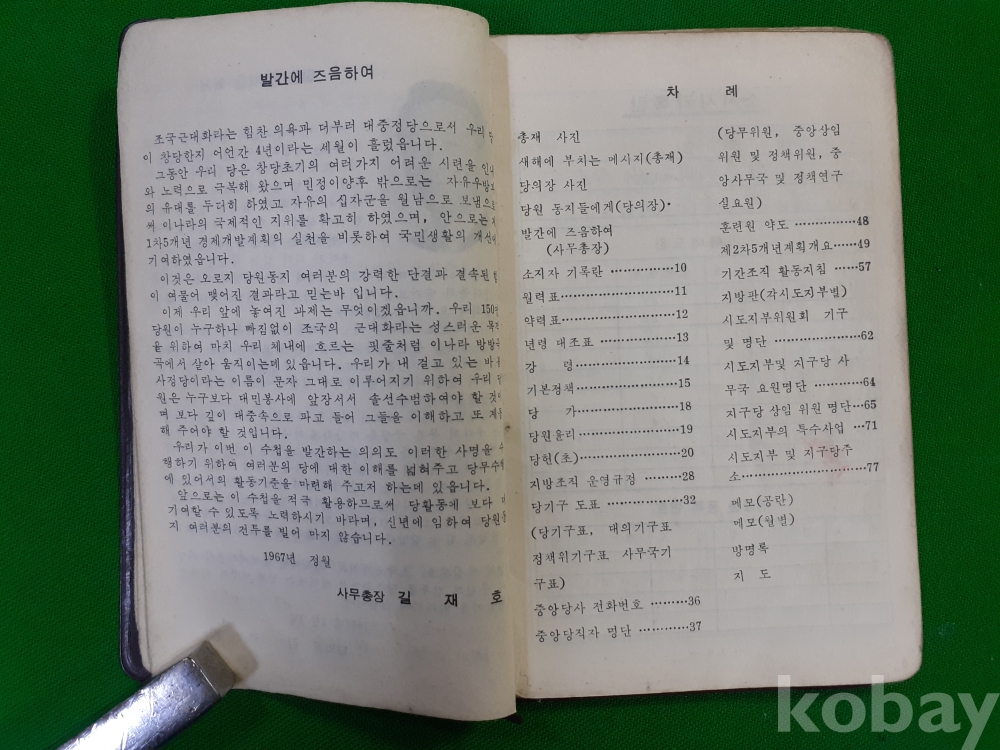 발간에 즈음하여
조국근대화라는 힘찬 의욕과 더부러 대중정당으로서 우리
이 창당한지 어언간 4년이라는 세월이 흘렀읍니다.
그동안 우리 당은 창당초기의 여러가지 어려운 시련을
와 노력으로 극복해 왔으며 민정이양후 밖으로는 자유우방
의 유대를 두더히 하였고 자유의 십자군을 월남으로 보냄으로
써 이나라의 국제적인 지위를 확고히 하였으며, 안으로는
1차5개년 경제개발계획의 실천을 비롯하여 국민생활의 개선에
기여하였읍니다.
이것은 오로지 당원동지 여러분의 강력한 단결과 결속된
이 여물어 맺어진 결과라고 믿는바 입니다.
이제 우리 앞에 놓여진 과제는 무엇이겠읍니까. 우리 150만
당원이 누구하나 빠짐없이 조국의 근대화라는 성스러운 목적
을 위하여 마치 우리 체내에 흐르는 핏줄처럼 이나라 방방곡
곡에서 살아 움직이는데 있읍니다. 우리가 내 걸고 있는 바
사정당이라는 이름이 문자 그대로 이루어지기 위하여 우리
원은 누구보다 대민봉사에 앞장서서 솔선수범하여야 할 것이
며 보다 깊이 대중속으로 파고 들어 그들을 이해하고 또 계몽
해 주어야 할 것입니다.
우리가 이번 이 수첩을 발간하는 의의도 이러한 사명을 수
행하기 위하여 여러분의 당에 대한 이해를 넓혀주고 당무수행
에 있어서의 활동기준을 마련해 주고저 하는데 있읍니다.
앞으로는 이 수첩을 적극 활용하므로써 당활동에 보다
기여할 수 있도록 노력하시기 바라며, 신년에 임하여 당원동
지 여러분의 전투를 빌어 마지 않습니다.
1967년 정월
사무총장 길 재 호
차 례
총재 사진
새해에 부치는 메시지(총재)
당의장 사진
당원 동지들에게(당의장)·
발간에 즈음하여
(사무총장)
소지자 기록란 ……………10
월력표…………………11
약력표…………………12
년령 대조표 ……………13
강 령 ………………14
기본정책………………15
당 가………………18
당원윤리………………19
당헌(초)………………20
지방조직 운영규정 ………28
당기구 도표 ……………32
(당기구표, 대의기구표
정책위기구표 사무국기
구표)
중앙당사 전화번호 ………36
중앙당직자 명단 …………37
(당무위원, 중앙상임
위원 및 정책위원, 중
앙사무국 및 정책연구
실요원)
훈련원 약도 ……………48
제2차5개년계획개요……49
기간조직 활동지침 ……57
지방판(각시도지부별)
시도지부위원회 기구
및 명단 ………………62
시도지부및 지구당 사
무국 요원명단 …………64
지구당 상임 위원 명단…65
시도지부의 특수사업 …71
시도지부 및 지구당주
소……………………77
메모(공란)
메모(월별)
방명록
지 도
kobay